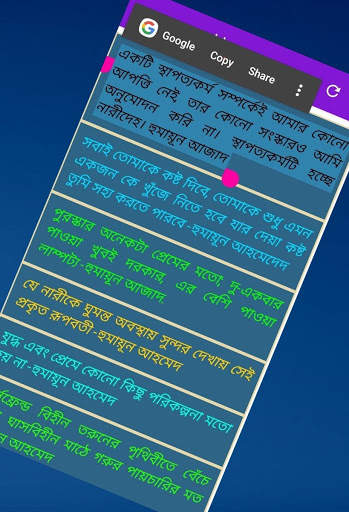 Google Copy Share
একটি স্থাপত্যকর্ম সম্পর্কেই আমার কোনো
আপত্তি নেই, তার কোনো সংস্কারও আমি
অনুমোদন করি না। স্থাপত্যকর্মটি হচ্ছে
নারীদেহ। হুমায়ুন আজাদ
সবাই তোমাকে কষ্ট দিবে, তোমাকে শুধু এমন
একজন কে খুঁজে নিতে হবে যার দেয়া কষ্ট
তুমি সহ্য করতে পারবে -হুমায়ূন আহমেদেদ
পুরস্কার অনেকটা প্রেমের মতো; দু-একবার
পাওয়া খুবই দরকার, এর বেশি পাওয়া
লাম্পট্য-হুমায়ুন আজাদ
যে নারীকে ঘুমন্ত অবস্থায় সুন্দর দেখায় সেই
প্রকৃত রূপবতী -হুমায়ূন আহমেদ
যুদ্ধ এবং প্রেমে কোনো কিছু পরিকল্পনা মতো
না -হুমায়ূন আহমেদ
বিহীন তরুনের পৃথিবীতে বেঁচে
ঘাসবিহীন মাঠে গরুর পায়চারির মত
আহমেদ